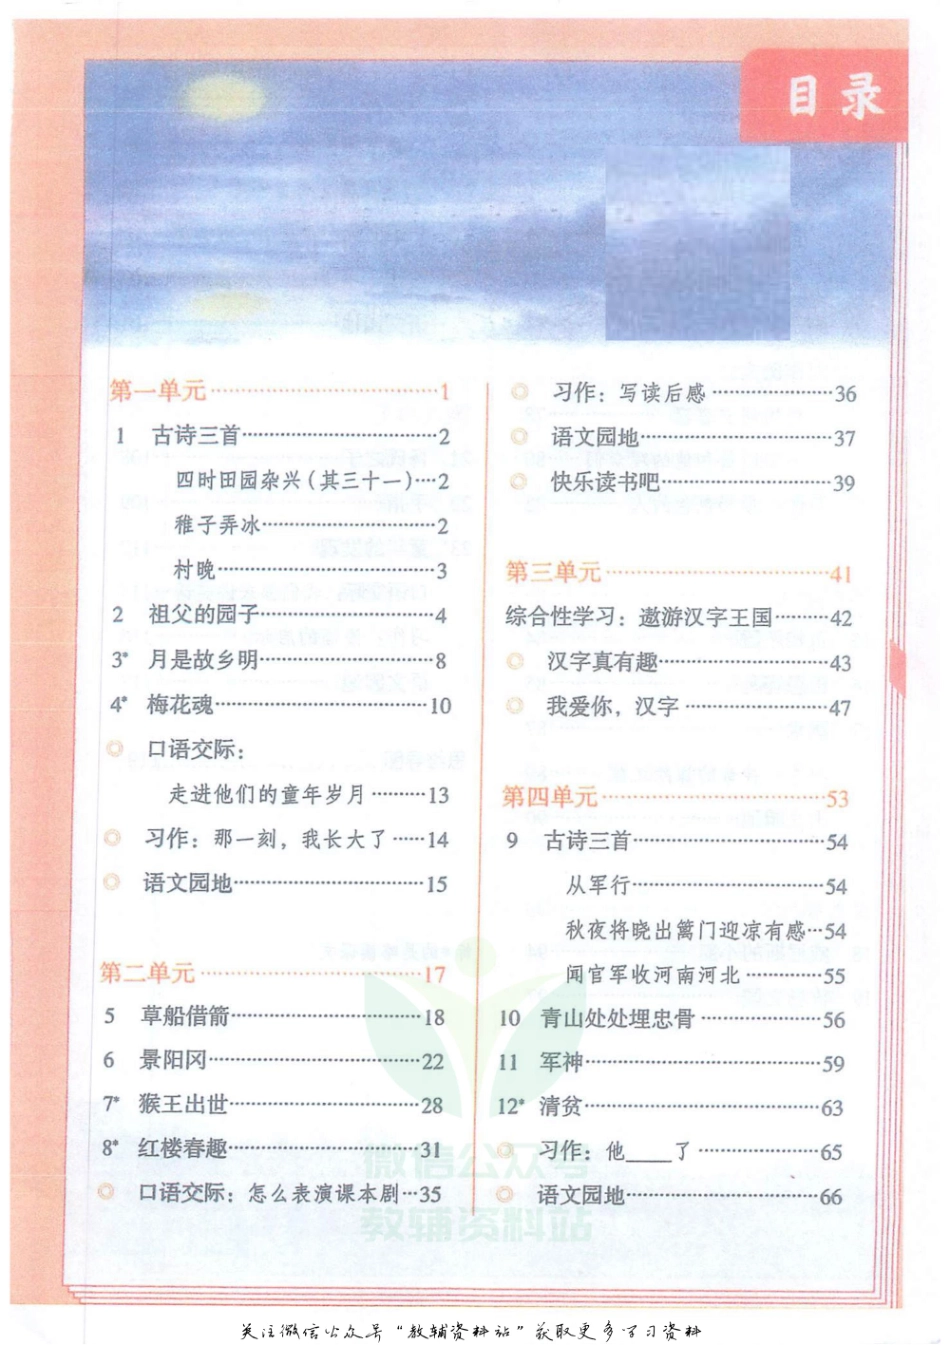 目录
第一单元……………………1
1 古诗三首……………………2
四时田园杂兴（其三十一）…2
稚子弄冰……………………2
村晚……………………3
2 祖父的园子……………………4
3* 月是故乡明……………………8
4* 梅花魂……………………10
口语交际：
走进他们的童年岁月………13
习作：那一刻，我长大了……14
语文园地……………………15
第二单元……………………17
5 草船借箭……………………18
6 景阳冈……………………22
7* 猴王出世……………………28
8* 红楼春趣……………………31
口语交际：怎么表演课本剧…35
习作：写读后感……………36
语文园地……………………37
快乐读书吧……………………39
第三单元……………………41
综合性学习：遨游汉字王国……42
汉字真有趣……………………43
我爱你，汉字………………47
第四单元……………………53
9 古诗三首……………………54
从军行……………………54
秋夜将晓出篱门迎凉有感…54
闻官军收河南河北…………55
10 青山处处埋忠骨……………56
11 军神……………………59
12* 清贫……………………63
习作：他____了………………65
语文园地……………………66
微信公众号
教辅资料站
关注微信公众号“教辅资料站”获取更多学习资料